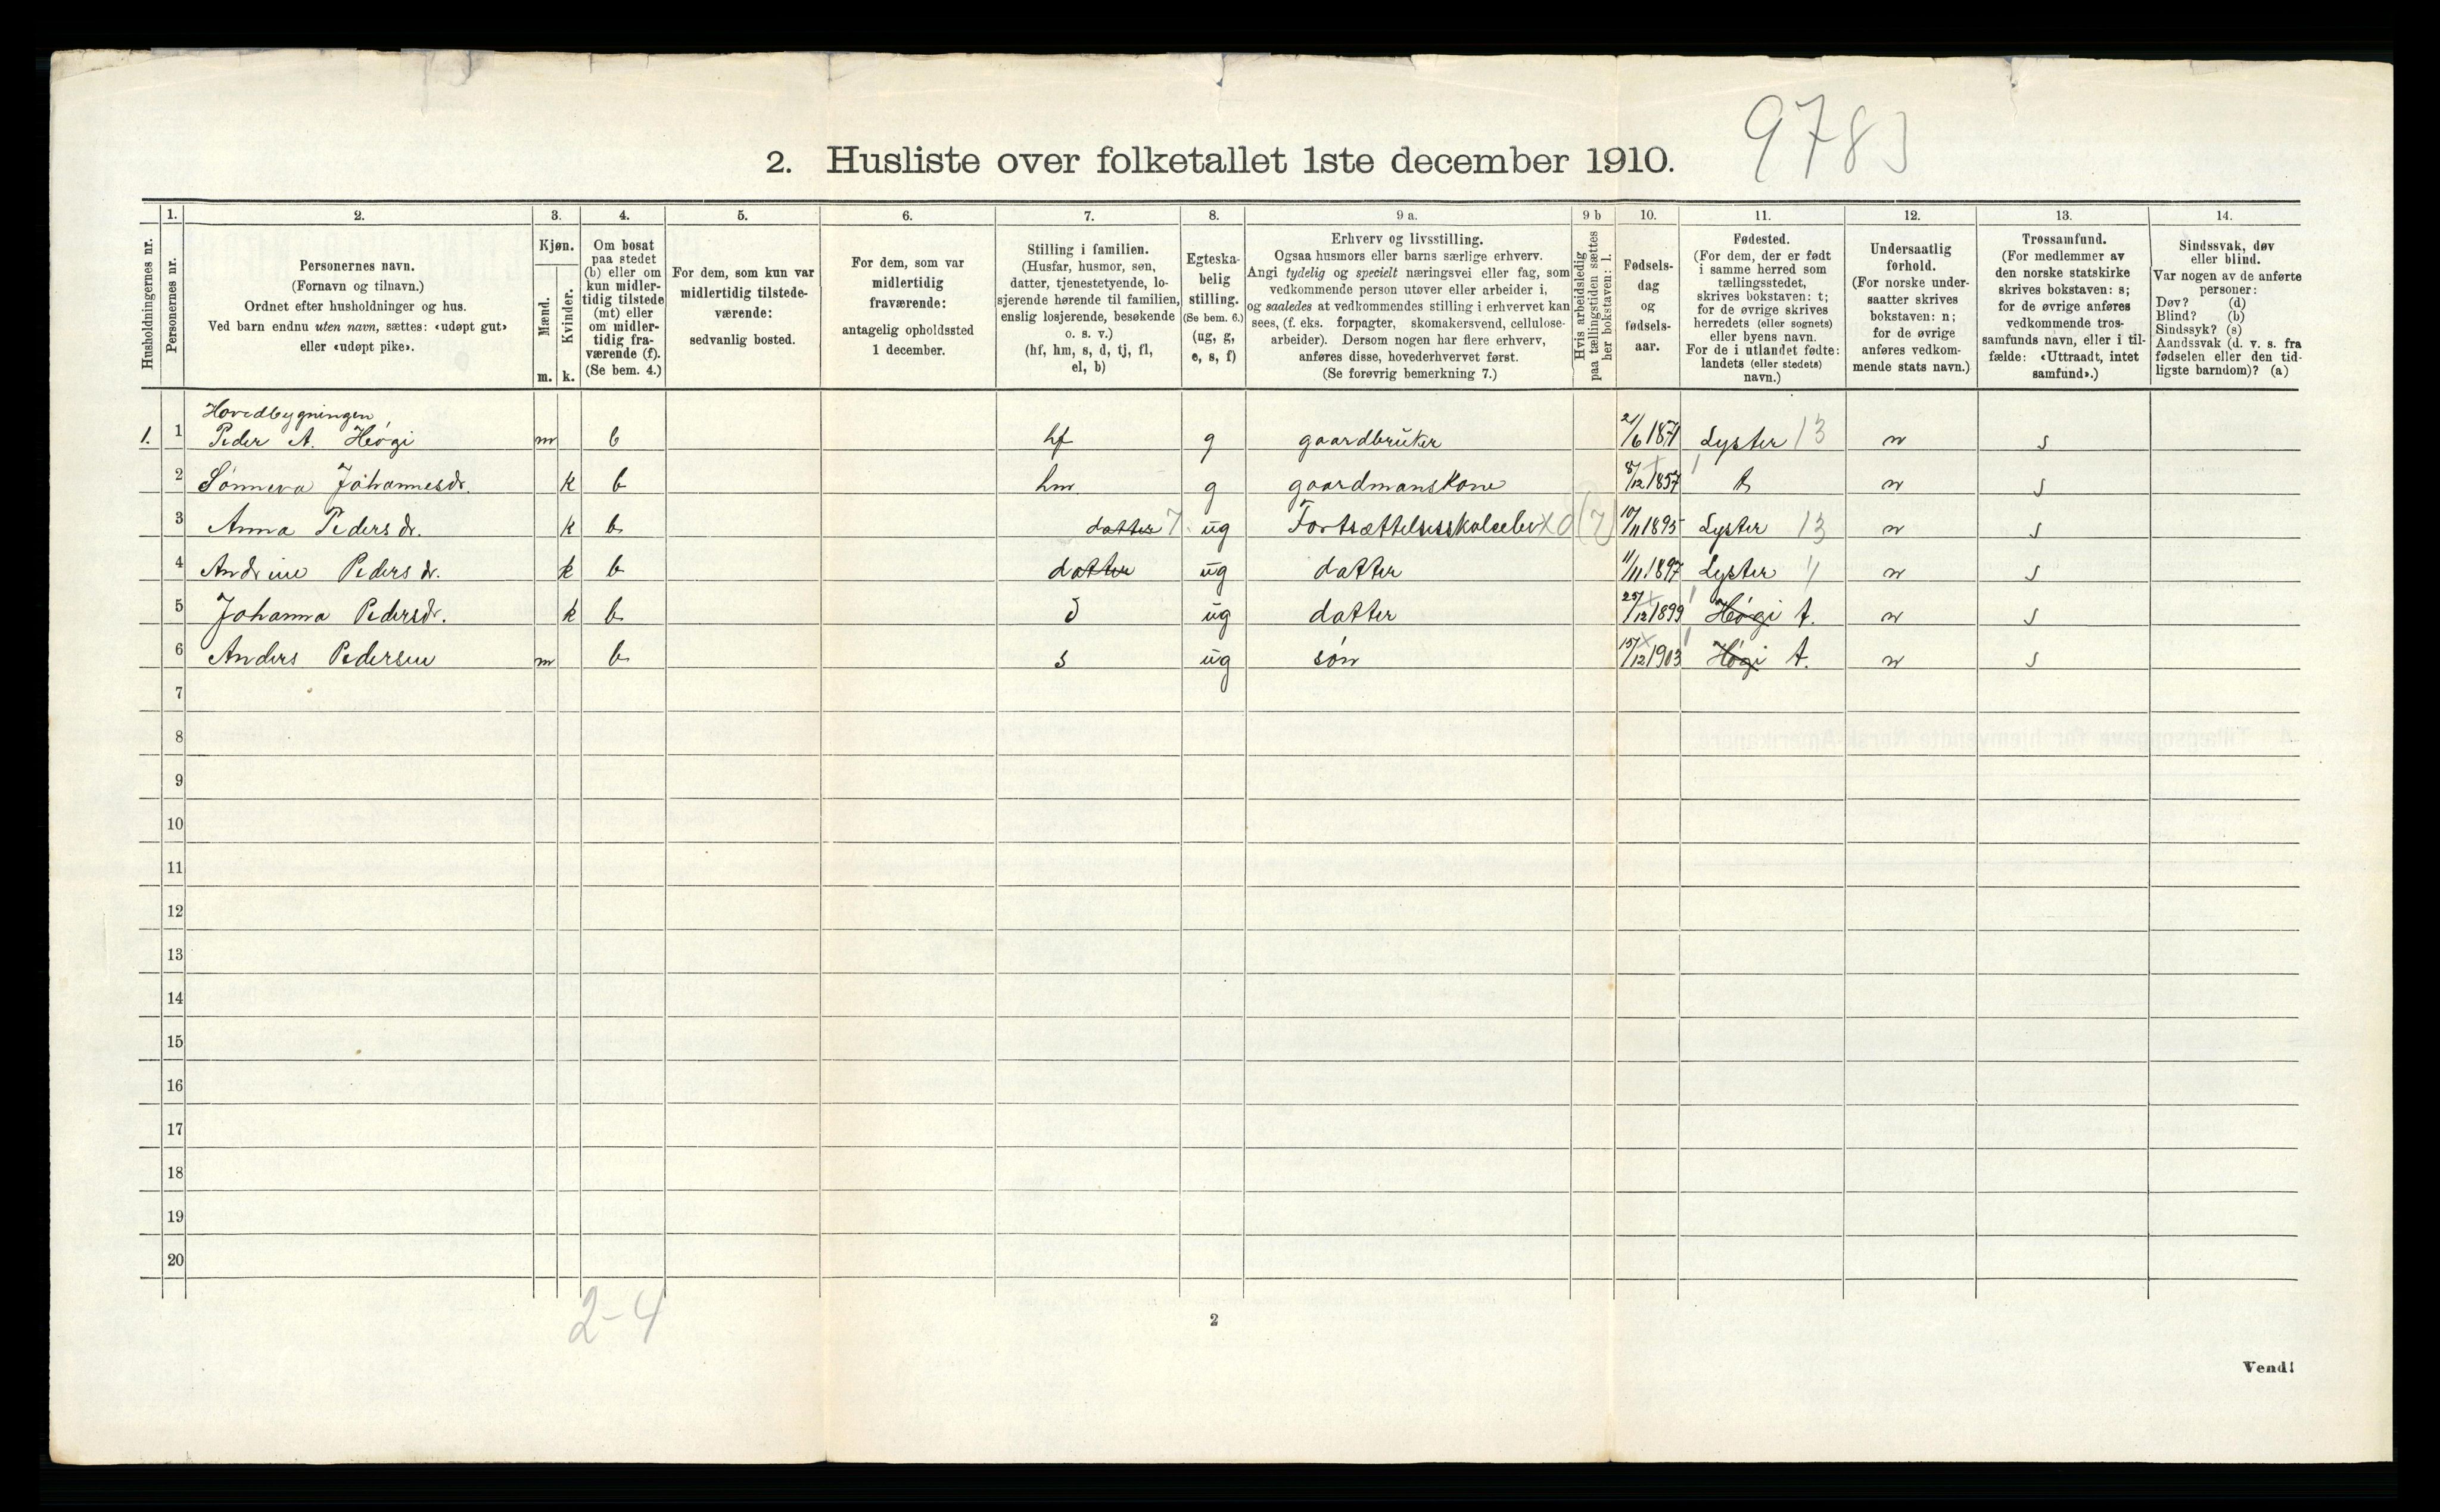 9783
2. Husliste over folketallet 1ste december 1910.
Husholdningernes nr.
1.
Personernes nr.
2.
Personernes navn.
(Fornavn og tilnavn.)
Ordnet efter husholdninger og hus.
Ved barn endnu uten navn, sættes: «udøpt gut»
eller «udøpt pike».
3.
Kjøn.
Mænd.
Kvinder.
m. k.
4.
Om bosat
paa stedet
(b) eller om
kun midler-
tidig tilstede
(mt) eller
om midler-
tidig fra-
værende (f).
(Se bem. 4.)
5.
For dem, som kun var
midlertidig tilstede-
værende:
sedvanlig bosted.
6.
For dem, som var
midlertidig
fraværende:
antagelig opholdssted
1 december.
7.
Stilling i familien.
(Husfar, husmor, søn,
datter, tjenestetyende, lo-
sjerende hørende til familien,
enslig losjerende, besøkende
o. s. v.)
(hf, hm, s, d, tj, fl,
el, b)
8.
Egteska-
belig
stilling.
(Se bem. 6.)
(ug, g,
e, s, f)
9 a.
Erhverv og livsstilling.
Ogsaa husmors eller barns særlige erhverv.
Angi tydelig og specielt næringsvei eller fag, som
vedkommende person utøver eller arbeider i,
og saaledes at vedkommendes stilling i erhvervet kan
sees, (f. eks. forpagter, skomakersvend, cellulose-
arbeider). Dersom nogen har flere erhverv,
anføres disse, hovederhvervet først.
(Se forøvrig bemerkning 7.)
9 b
Hvis arbeidsledig
paa tællingstiden sættes
her bokstaven: l.
10.
Fødsels-
dag
og
fødsels-
aar.
11.
Fødested.
(For dem, der er født
i samme herred som
tællingsstedet,
skrives bokstaven: t;
for de øvrige skrives
herredets (eller sognets)
eller byens navn.
For de i utlandet fødte:
landets (eller stedets)
navn.)
12.
Undersaatlig
forhold.
(For norske under-
saatter skrives
bokstaven: n;
for de øvrige
anføres vedkom-
mende stats navn.)
13.
Trossamfund.
(For medlemmer av
den norske statskirke
skrives bokstaven: s;
for de øvrige anføres
vedkommende tros-
samfunds navn, eller i til-
fælde: «Uttraadt, intet
samfund».)
14.
Sindssvak, døv
eller blind.
Var nogen av de anførte
personer:
Døv? (d)
Blind? (b)
Sindssyk? (s)
Aandssvak (d. v. s. fra
fødselen eller den tid-
ligste barndom)? (a)
Hovedbygningen
1. 1 Peder A. Høgi m b hf g gaardbruker 21/6 1871 Lyster 13 n s
2 Sønneva Johannesdr. k b hm g gaardmanskone 8/12 1857 t n s
3 Anna Pedersdr. k b datter 7 ug Fortsættelsesskoleelev X0 (7) 10/11 1895 Lyster 13 n s
4 Andrine Pedersdr. k b datter ug datter 11/11 1897 Lyster n s
5 Johanna Pedersdr. k b d ug datter 25/12 1899 Høgi t. n s
6 Anders Pedersen m b s ug søn 15/12 1903 Høgi t. n s
7
8
9
10
11
12
13
14
15
16
17
18
19
20
2-4
2
Vend!